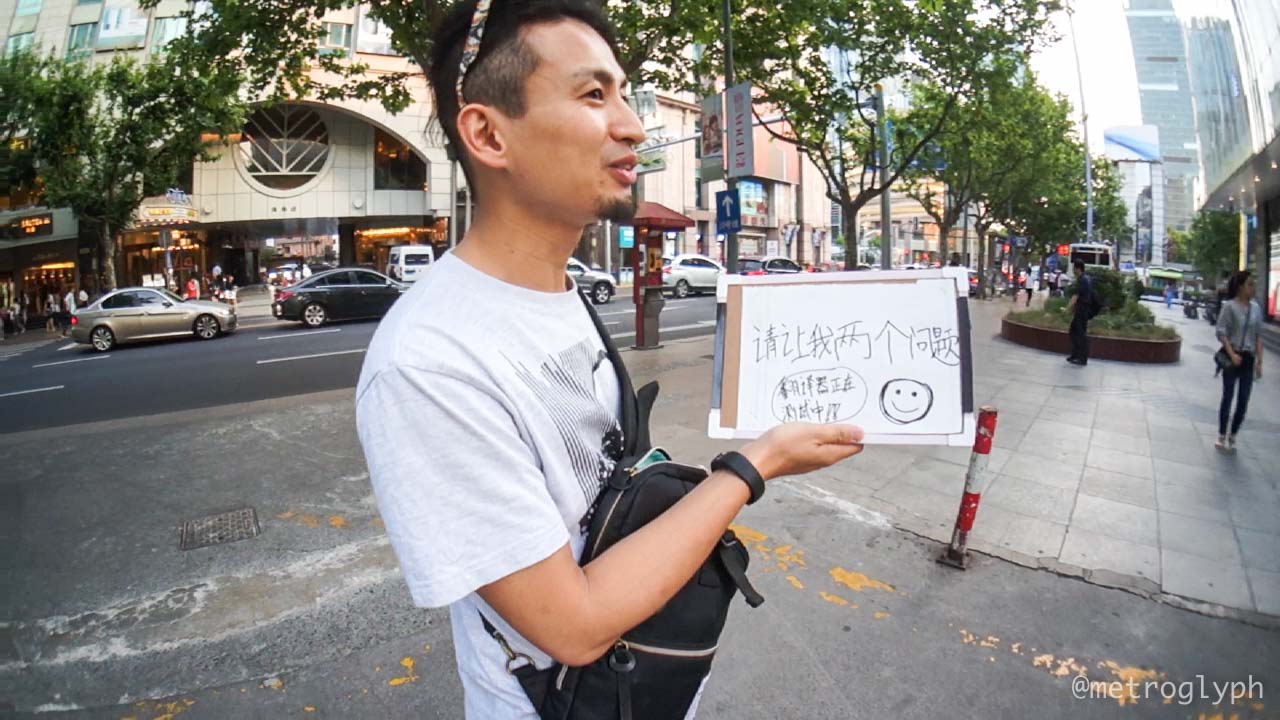 请让我两个问题
翻译器正在
测试中
@metroglyph